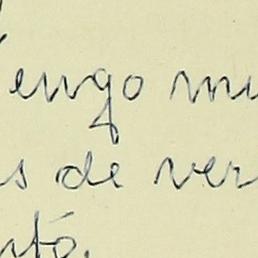 Tengo mu
s de ver
ntó.